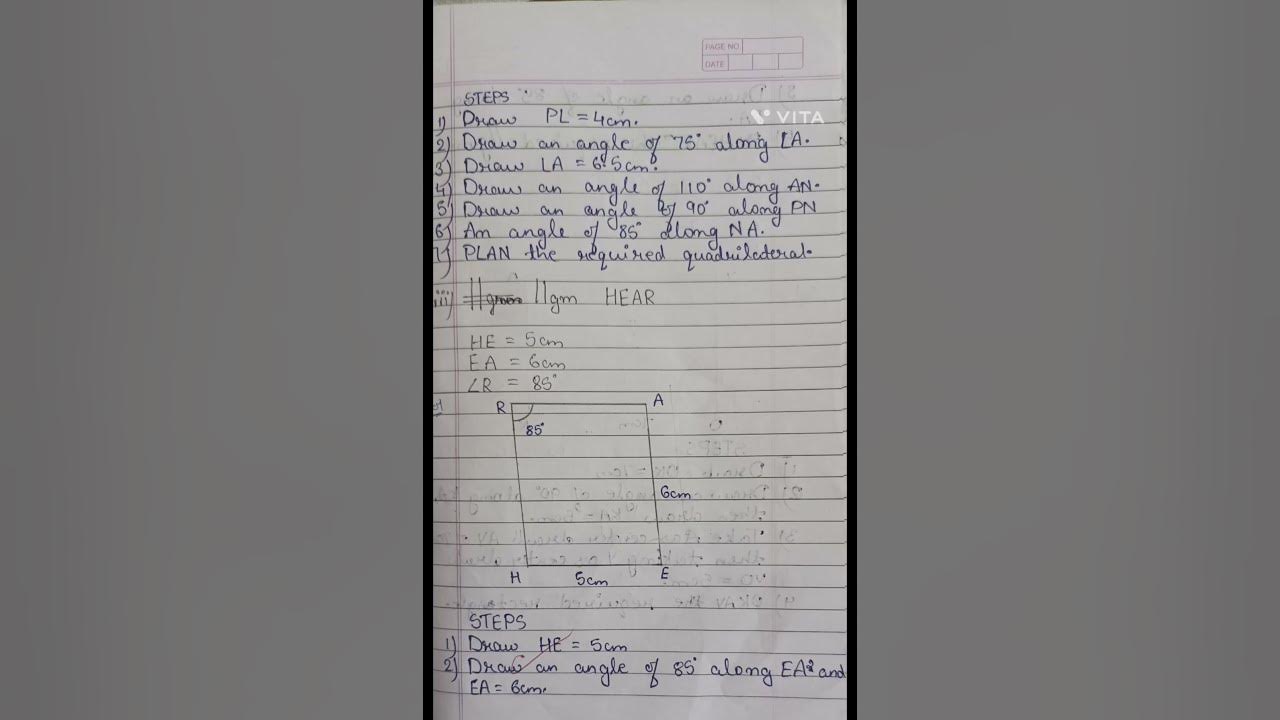 PAGE NO.
DATE
STEPS
VITA
1) Draw PL = 4cm.
2) Draw an angle of 75° along LA.
3) Draw LA = 6.5cm.
4) Draw an angle of 110° along AN.
5) Draw an angle of 90° along PN
6) An angle of 85° along NA.
7) PLAN the required quadrilateral.
iii) ||gm HEAR
HE = 5cm
EA = 6cm
∠R = 85°
R A
85°
6cm
H 5cm E
STEPS
1) Draw HE = 5cm
2) Draw an angle of 85° along EA and
EA = 6cm.